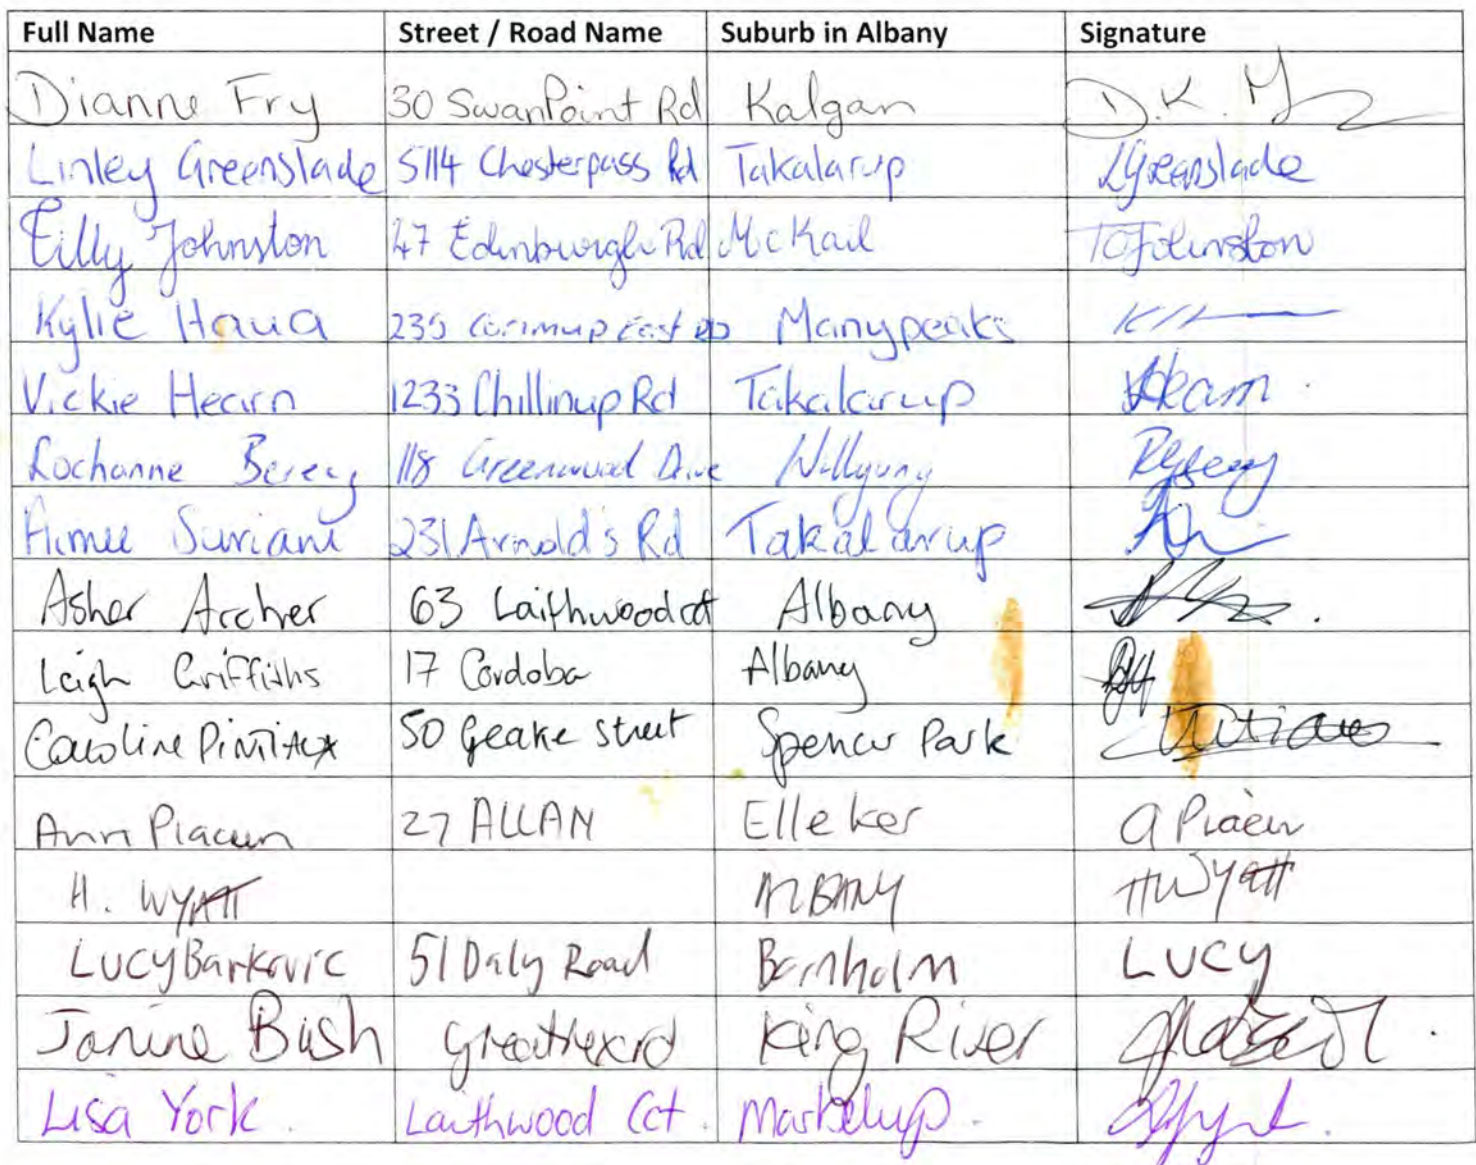 Full Name Street / Road Name Suburb in Albany Signature
Dianne Fry 30 Swan Point Rd Kalgan D.K.
Linley Greenslade 5114 Chesterpass Rd Takalarup LGreenslade
Tilly Johnston 47 Edinburgh Rd McKail TOJohnston
Kylie Haua 235 East RD Manypeaks
Vickie Hearn 1233 Chillinup Rd Takalarup VHearn
Rochanne Berey 118 Greenwood Drive Willyung
Aimee Suriani 231 Arnold's Rd Takalarup
Asher Archer 63 Laithwood cct Albany
Leigh Griffiths 17 Cordoba Albany
Caroline 50 Geake Street Spencer Park
Ann 27 ALLAN Elleker
H. WYATT ALBANY HWyatt
LUCY Barkovic 51 Daly Road Bornholm LUCY
Janine Bush Greatrex rd King River
Lisa York. Laithwood Cct. Marbelup.